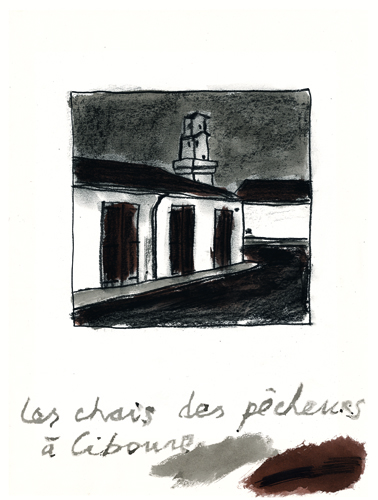 Les chais des pêcheurs
à Ciboure